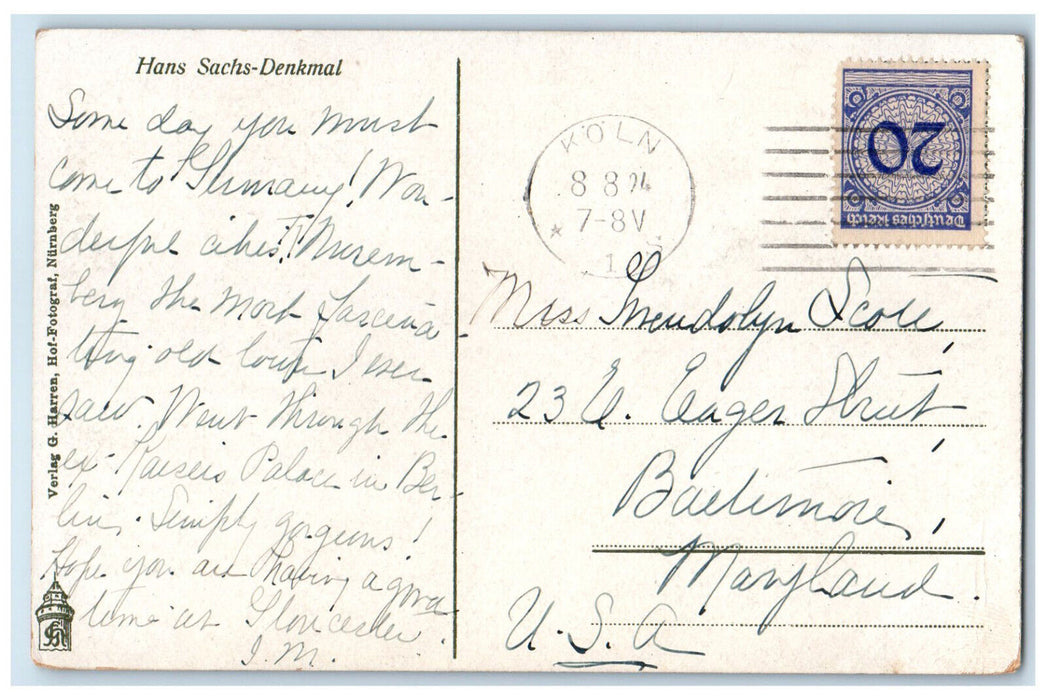 Hans Sachs-Denkmal
Some day you must
come to Germany! Won-
derful cities!! Nurem-
berg the most fascina-
ting old town I ever
saw. Went through the
ex-Kaisers Palace in Ber-
lin. Simply gorgeous!
Hope you are having a good
time at Gloucester.
I.M.
Verlag G. Harren, Hof-Fotograf, Nürnberg
KÖLN
8 8 24
7-8V
* 1 *
20
Deutsches Reich
Miss Gwendolyn
23 E. Eager Street,
Baltimore,
Maryland.
U.S.A